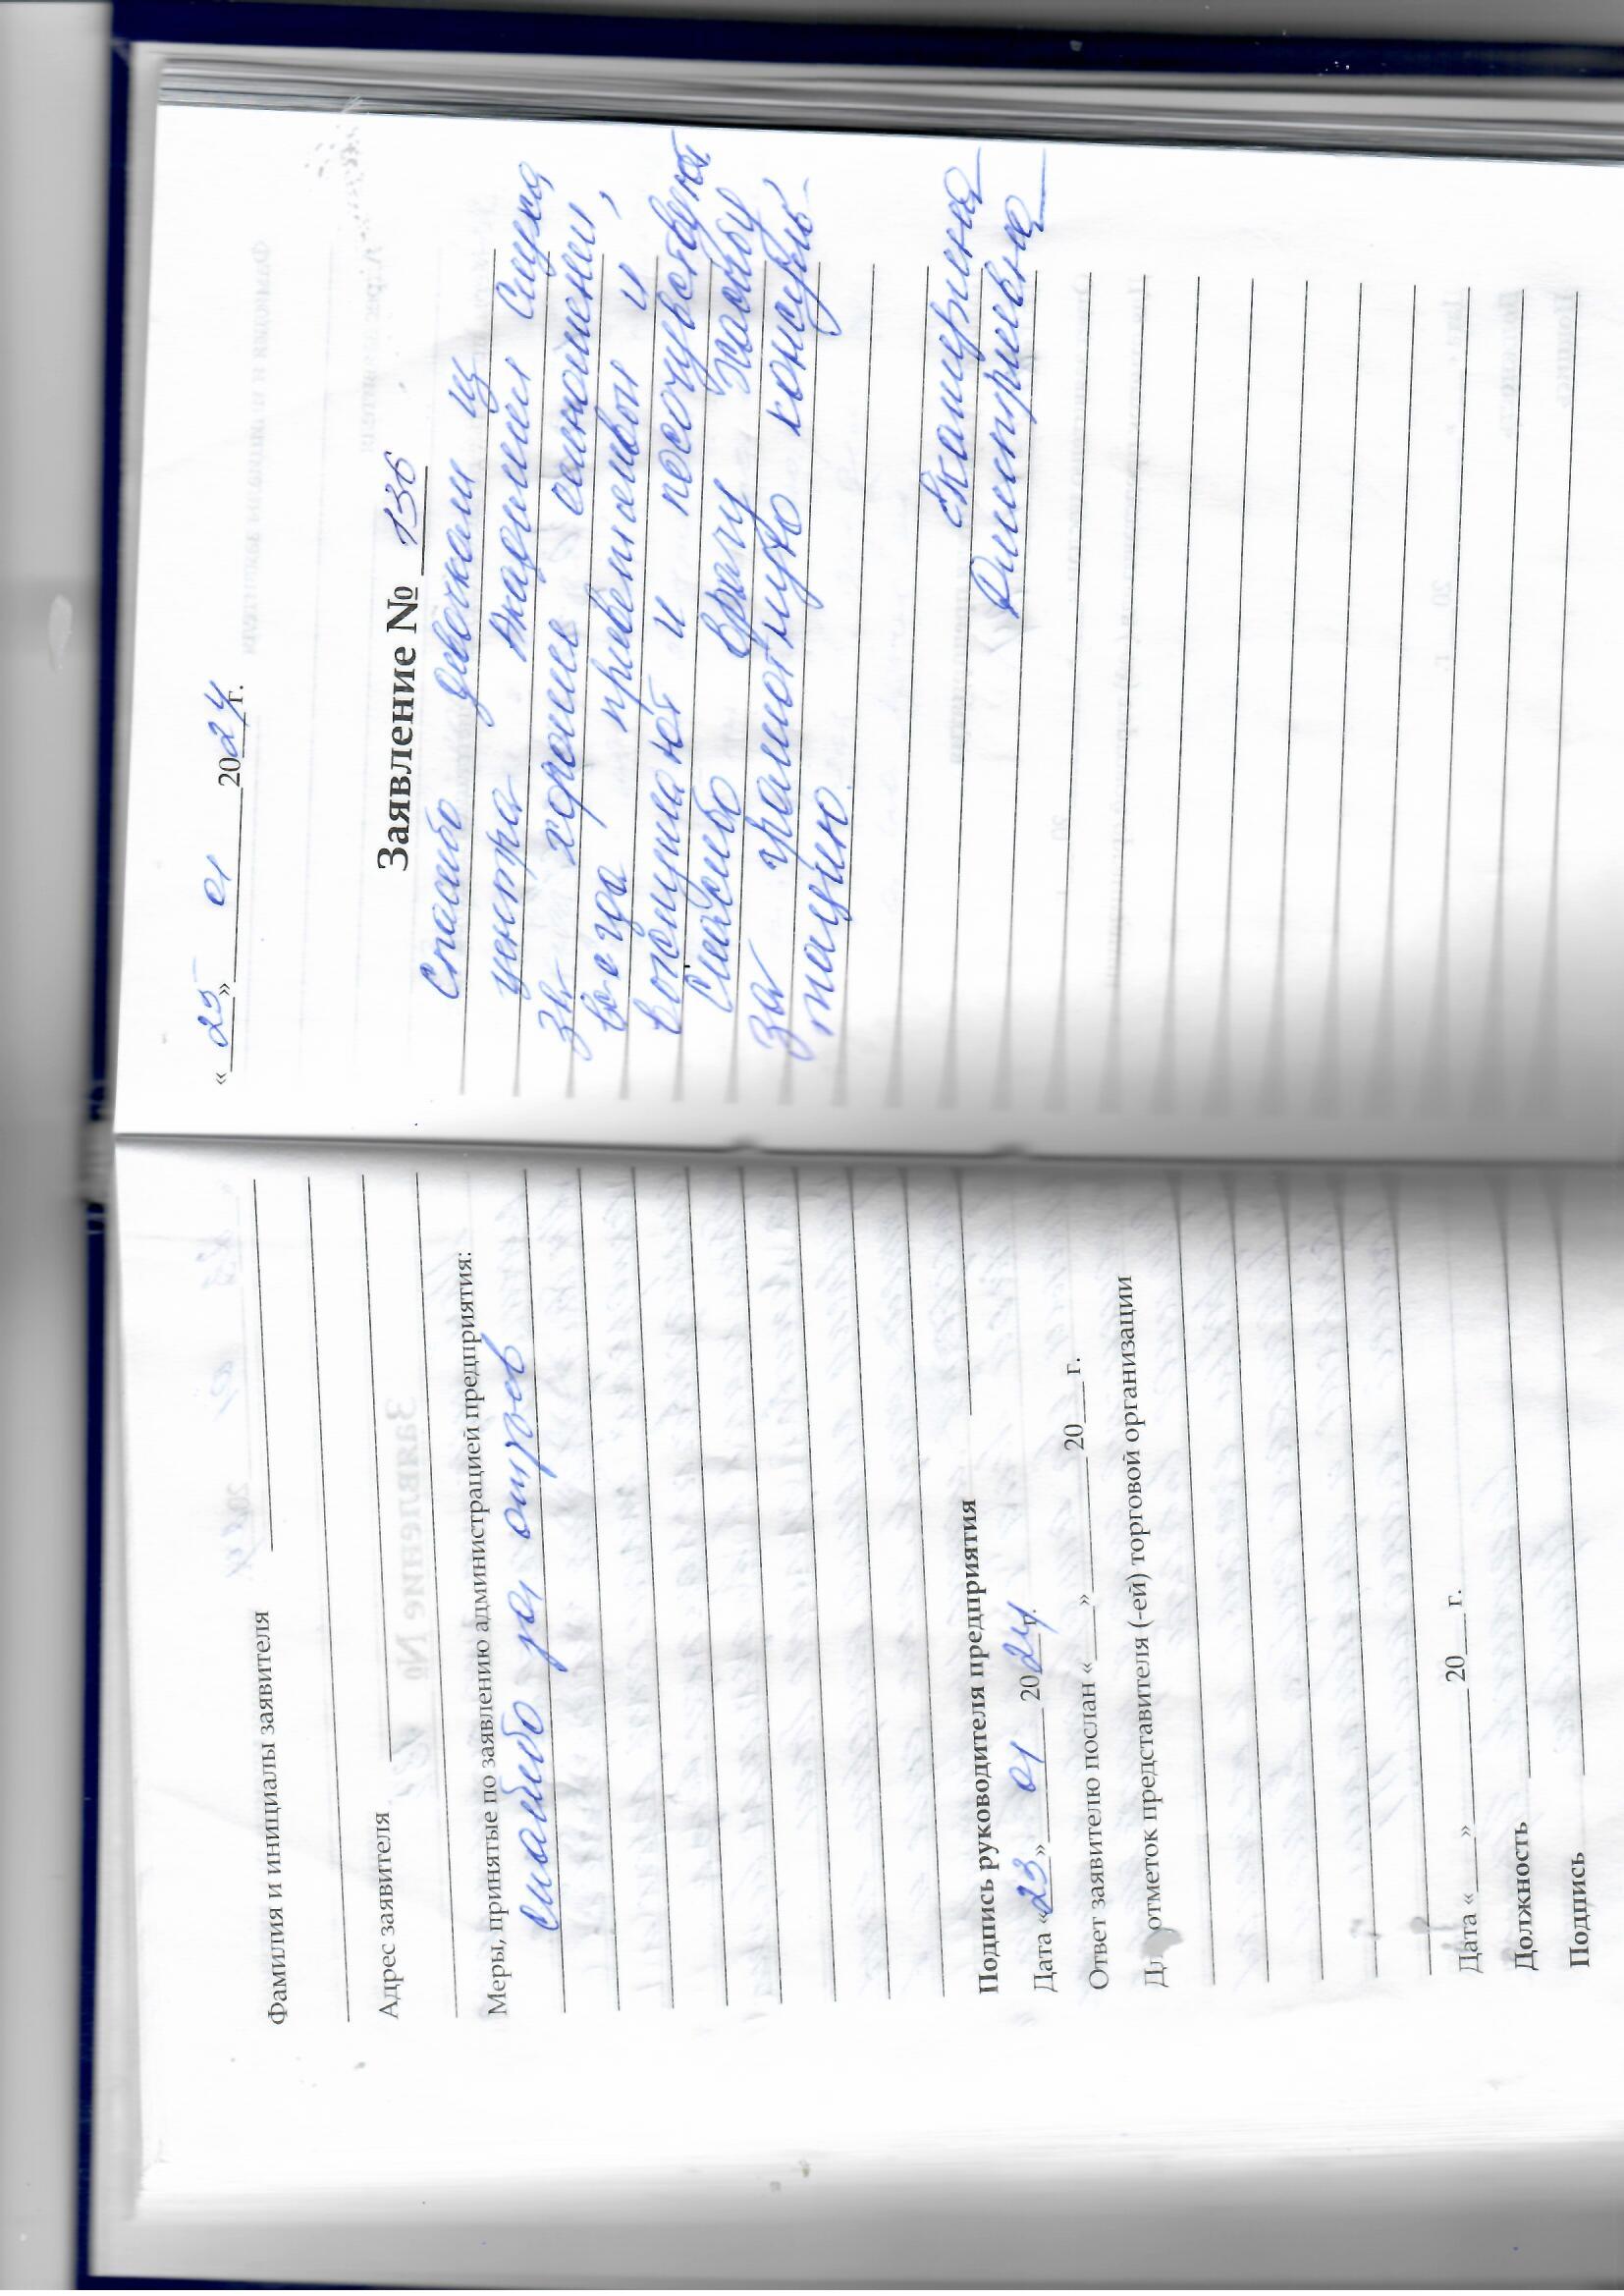 Фамилия и инициалы заявителя
Адрес заявителя
Меры, принятые по заявлению администрацией предприятия:
спасибо за отзыв
Подпись руководителя предприятия
Дата «23» 01 2024 г.
Ответ заявителю послан «___» ________ 20___ г.
Для отметок представителя (-ей) торговой организации
Дата «___» ________ 20___ г.
Должность
Подпись
«25» 01 2024 г.
Заявление № 136
Спасибо девочкам из
центра Академии Слуха
За хорошее отношении,
всегда приветливы и
выслушают и посочувствуют
Спасибо врачу
за грамотную консуль-
тацию.
Екатерина
Дмитриевна